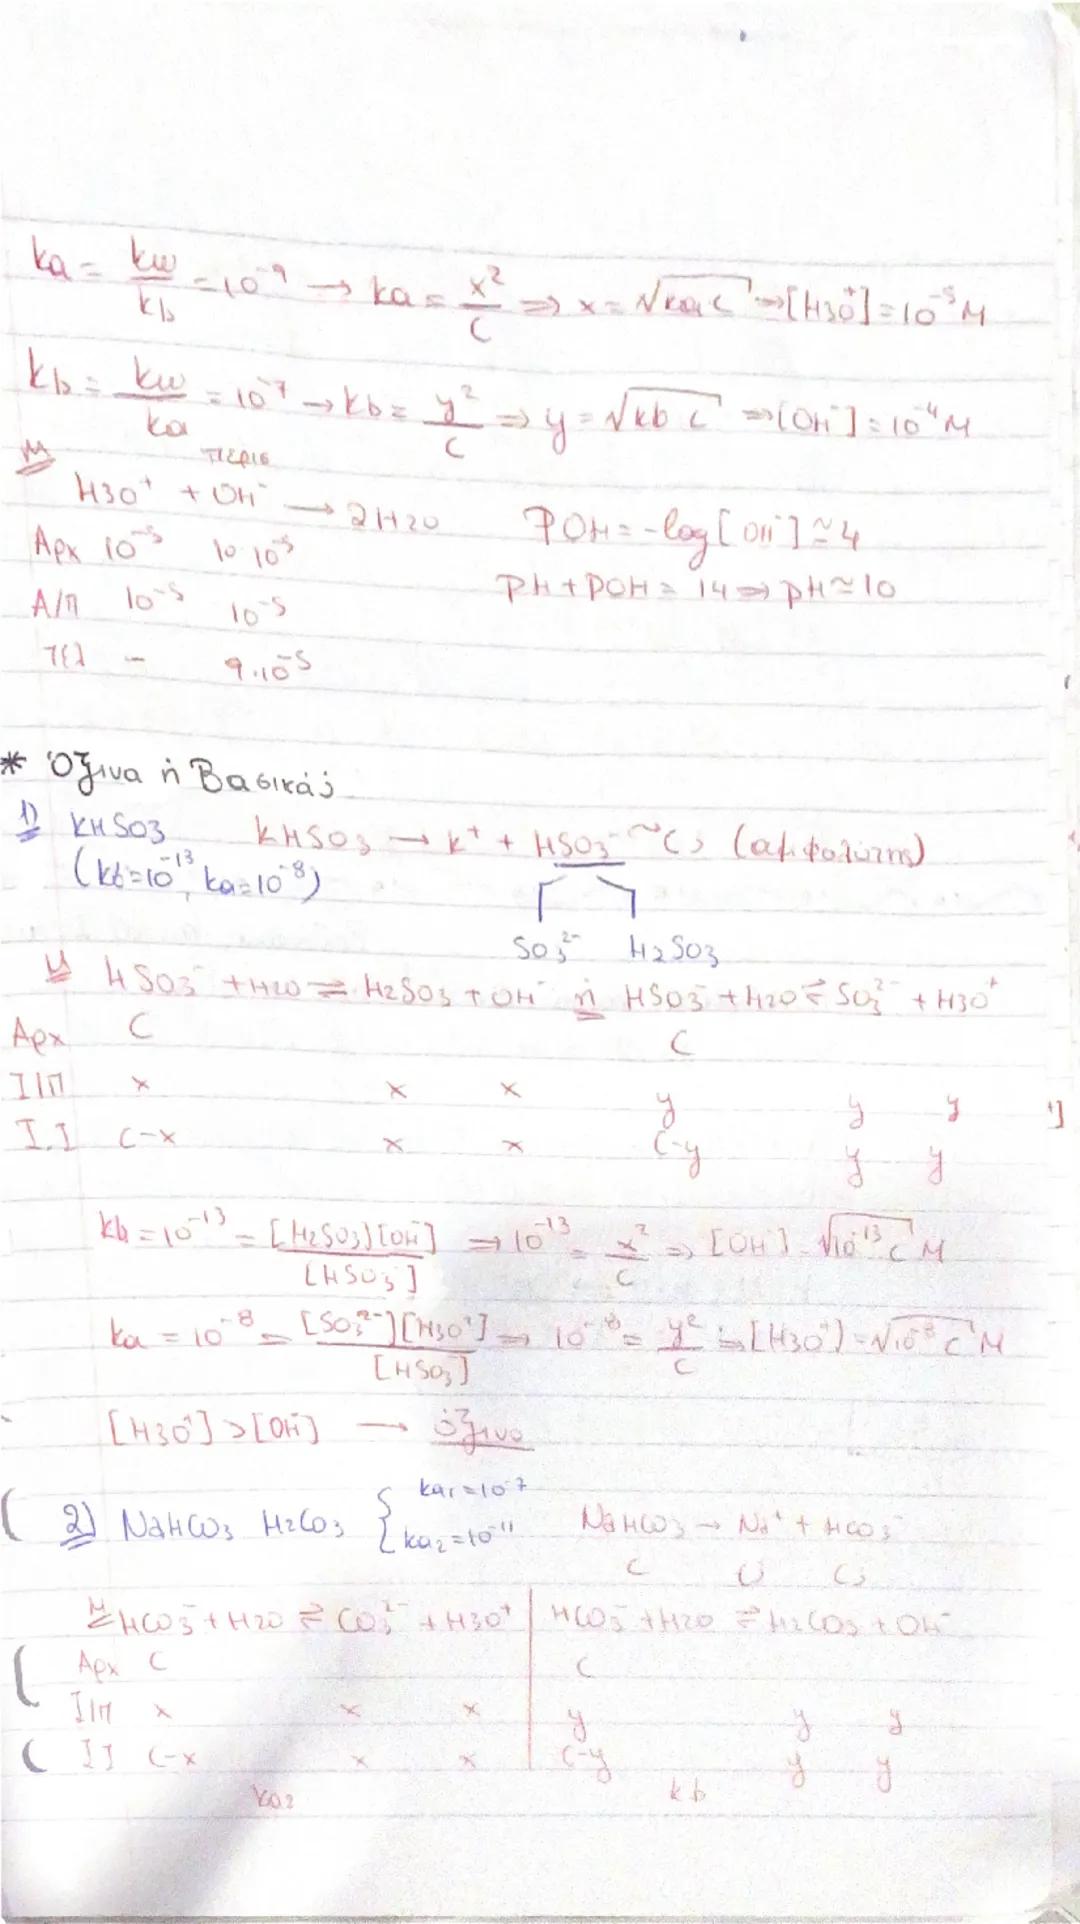 ka = kw/kb = 10⁻⁹ → ka = x²/C ⇒ x = √ka C ⇒ [H3O⁺] = 10⁻⁵ M
kb = kw/ka = 10⁻⁷ → kb = y²/C ⇒ y = √kb C ⇒ [OH⁻] = 10⁻⁴ M
M
περισ
H3O⁺ + OH⁻ → 2H2O POH = -log[OH⁻] ≃ 4
Αρχ 10⁻⁵ 10·10⁻⁵
PH + POH = 14 ⇒ pH ≃ 10
Α/Π 10⁻⁵ 10⁻⁵
Τελ - 9·10⁻⁵
* Όξινα ή Βασικά;
1) KHSO3 KHSO3 → K⁺ + HSO3⁻ ~ C; (αμφολύτης)
(kb=10⁻¹³, ka=10⁻⁸)
SO3²⁻ H2SO3
M HSO3⁻ + H2O ⇌ H2SO3 + OH⁻ ή HSO3⁻ + H2O ⇌ SO3²⁻ + H3O⁺
Αρχ C C
Ι/Π x x x y y y
Ι.Ι C-x x x C-y y y
kb = 10⁻¹³ = [H2SO3][OH⁻]/[HSO3⁻] ⇒ 10⁻¹³ = x²/C ⇒ [OH⁻] = √10⁻¹³ C M
ka = 10⁻⁸ = [SO3²⁻][H3O⁺]/[HSO3⁻] ⇒ 10⁻⁸ = y²/C ⇒ [H3O⁺] = √10⁻⁸ C M
[H3O⁺] > [OH⁻] → όξινο
2) NaHCO3 H2CO3 { ka1 = 10⁻⁷ ka2 = 10⁻¹¹ NaHCO3 → Na⁺ + HCO3⁻
C C C;
M HCO3⁻ + H2O ⇌ CO3²⁻ + H3O⁺ | HCO3⁻ + H2O ⇌ H2CO3 + OH⁻
Αρχ C C
Ι/Π x x x y y y
ΙΙ C-x x x C-y y y
ka2 kb